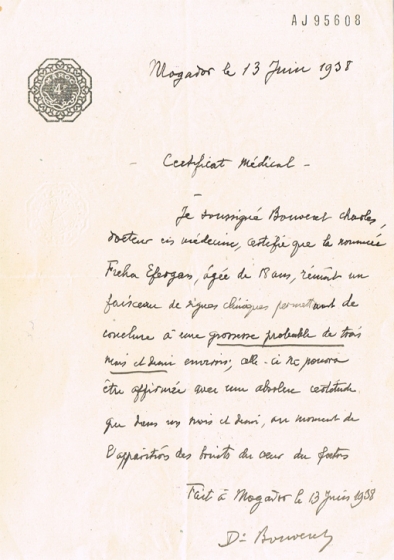 AJ95608
4
Mogador le 13 Juin 1938
- Certificat Médical -
Je soussigné Bouveret Charles,
docteur en médecine, certifie que la nommée
Freha Efergan, âgée de 18 ans, réunit un
faisceau de signes cliniques permettant de
conclure à une grossesse probable de trois
mois et demi environ; celle-ci ne pourra
être affirmée avec une absolue certitude
que dans un mois et demi, au moment de
l'apparition des bruits du cœur du fœtus
Fait à Mogador le 13 Juin 1938
Dr Bouveret